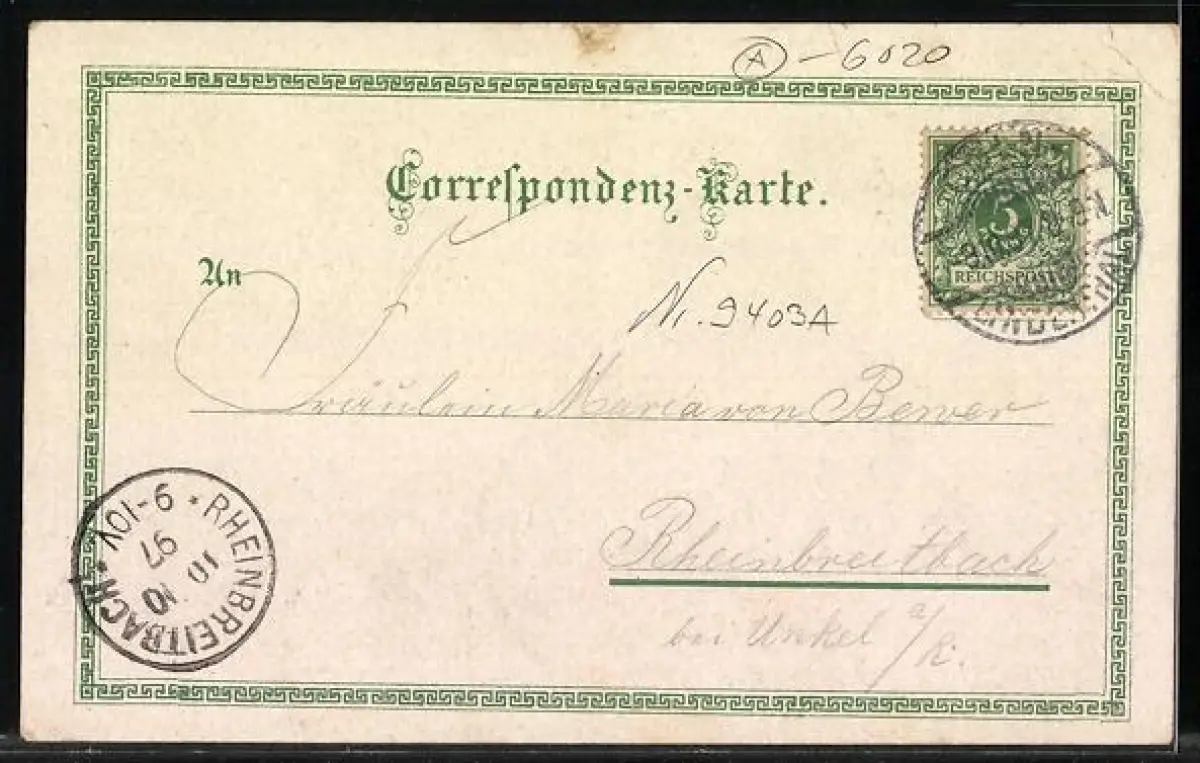 Ⓐ - 6020
Correspondenz-Karte.
5
REICHSPOST
An
Nr. 9403A
Fräulein Maria von Berver
RHEINBREITBACH * 9-10V *
10 10
97
Rheinbreitbach
bei Unkel a/R.